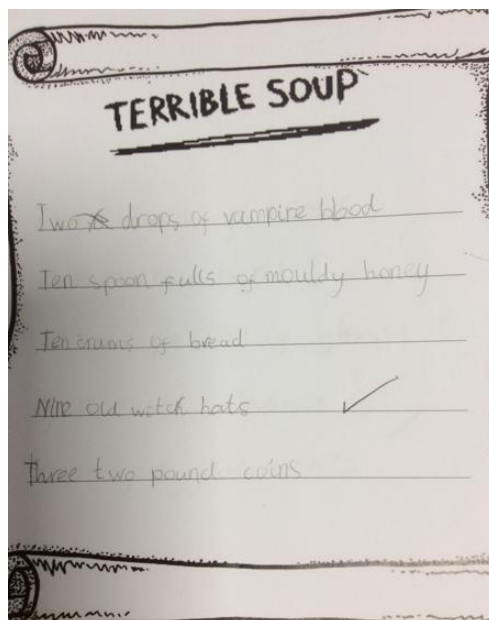 TERRIBLE SOUP
Two drops of vampire blood
Ten spoon fulls of mouldy honey
Ten crums of bread
Nine old witch hats
Three two pound coins